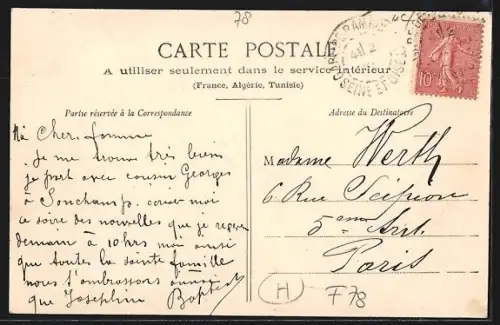 78
CARTE POSTALE
A utiliser seulement dans le service intérieur
(France, Algérie, Tunisie)
SEINE-ET-OISE
10
Partie réservée à la Correspondance
Adresse du Destinataire
Ma Cher femme
Je me trouve très bien
je part avec cousin Georges
à Sonchamp.
ce soire des nouvelles que je
demain à 10 hrs
que toutes la sainte famille
nous t'embrassons
que Joséphine Baptiste
Madame Werth
6 Rue Scipion
5 eme Arr.
Paris
H
F78